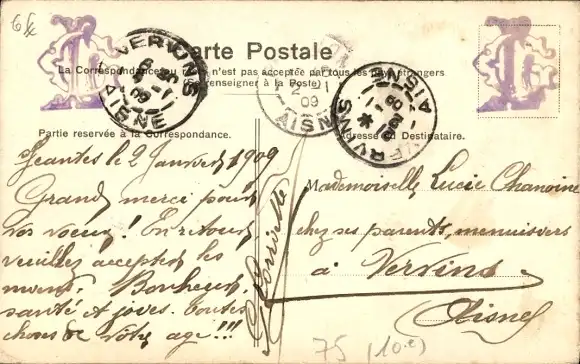 6 fx
Carte Postale
La Correspondance au verso n'est pas acceptée par tous les pays étrangers
(Se renseigner à la Poste)
VERVINS
AISNE
09
AISNE
2 - 1
09
VERVINS
AISNE
Partie reservée à la Correspondance.
Adresse du Destinataire.
Jeantes le 2 Janvier 1909
Grand merci pour
vos voeux! En retour
veuillez accepter les
miens. Bonheur,
santé et joies. toutes
choses de votre age!!!
Mademoiselle Lucie Chanoine
chez ses parents, menuisiers
à Vervins
Aisne
75 (10.e)